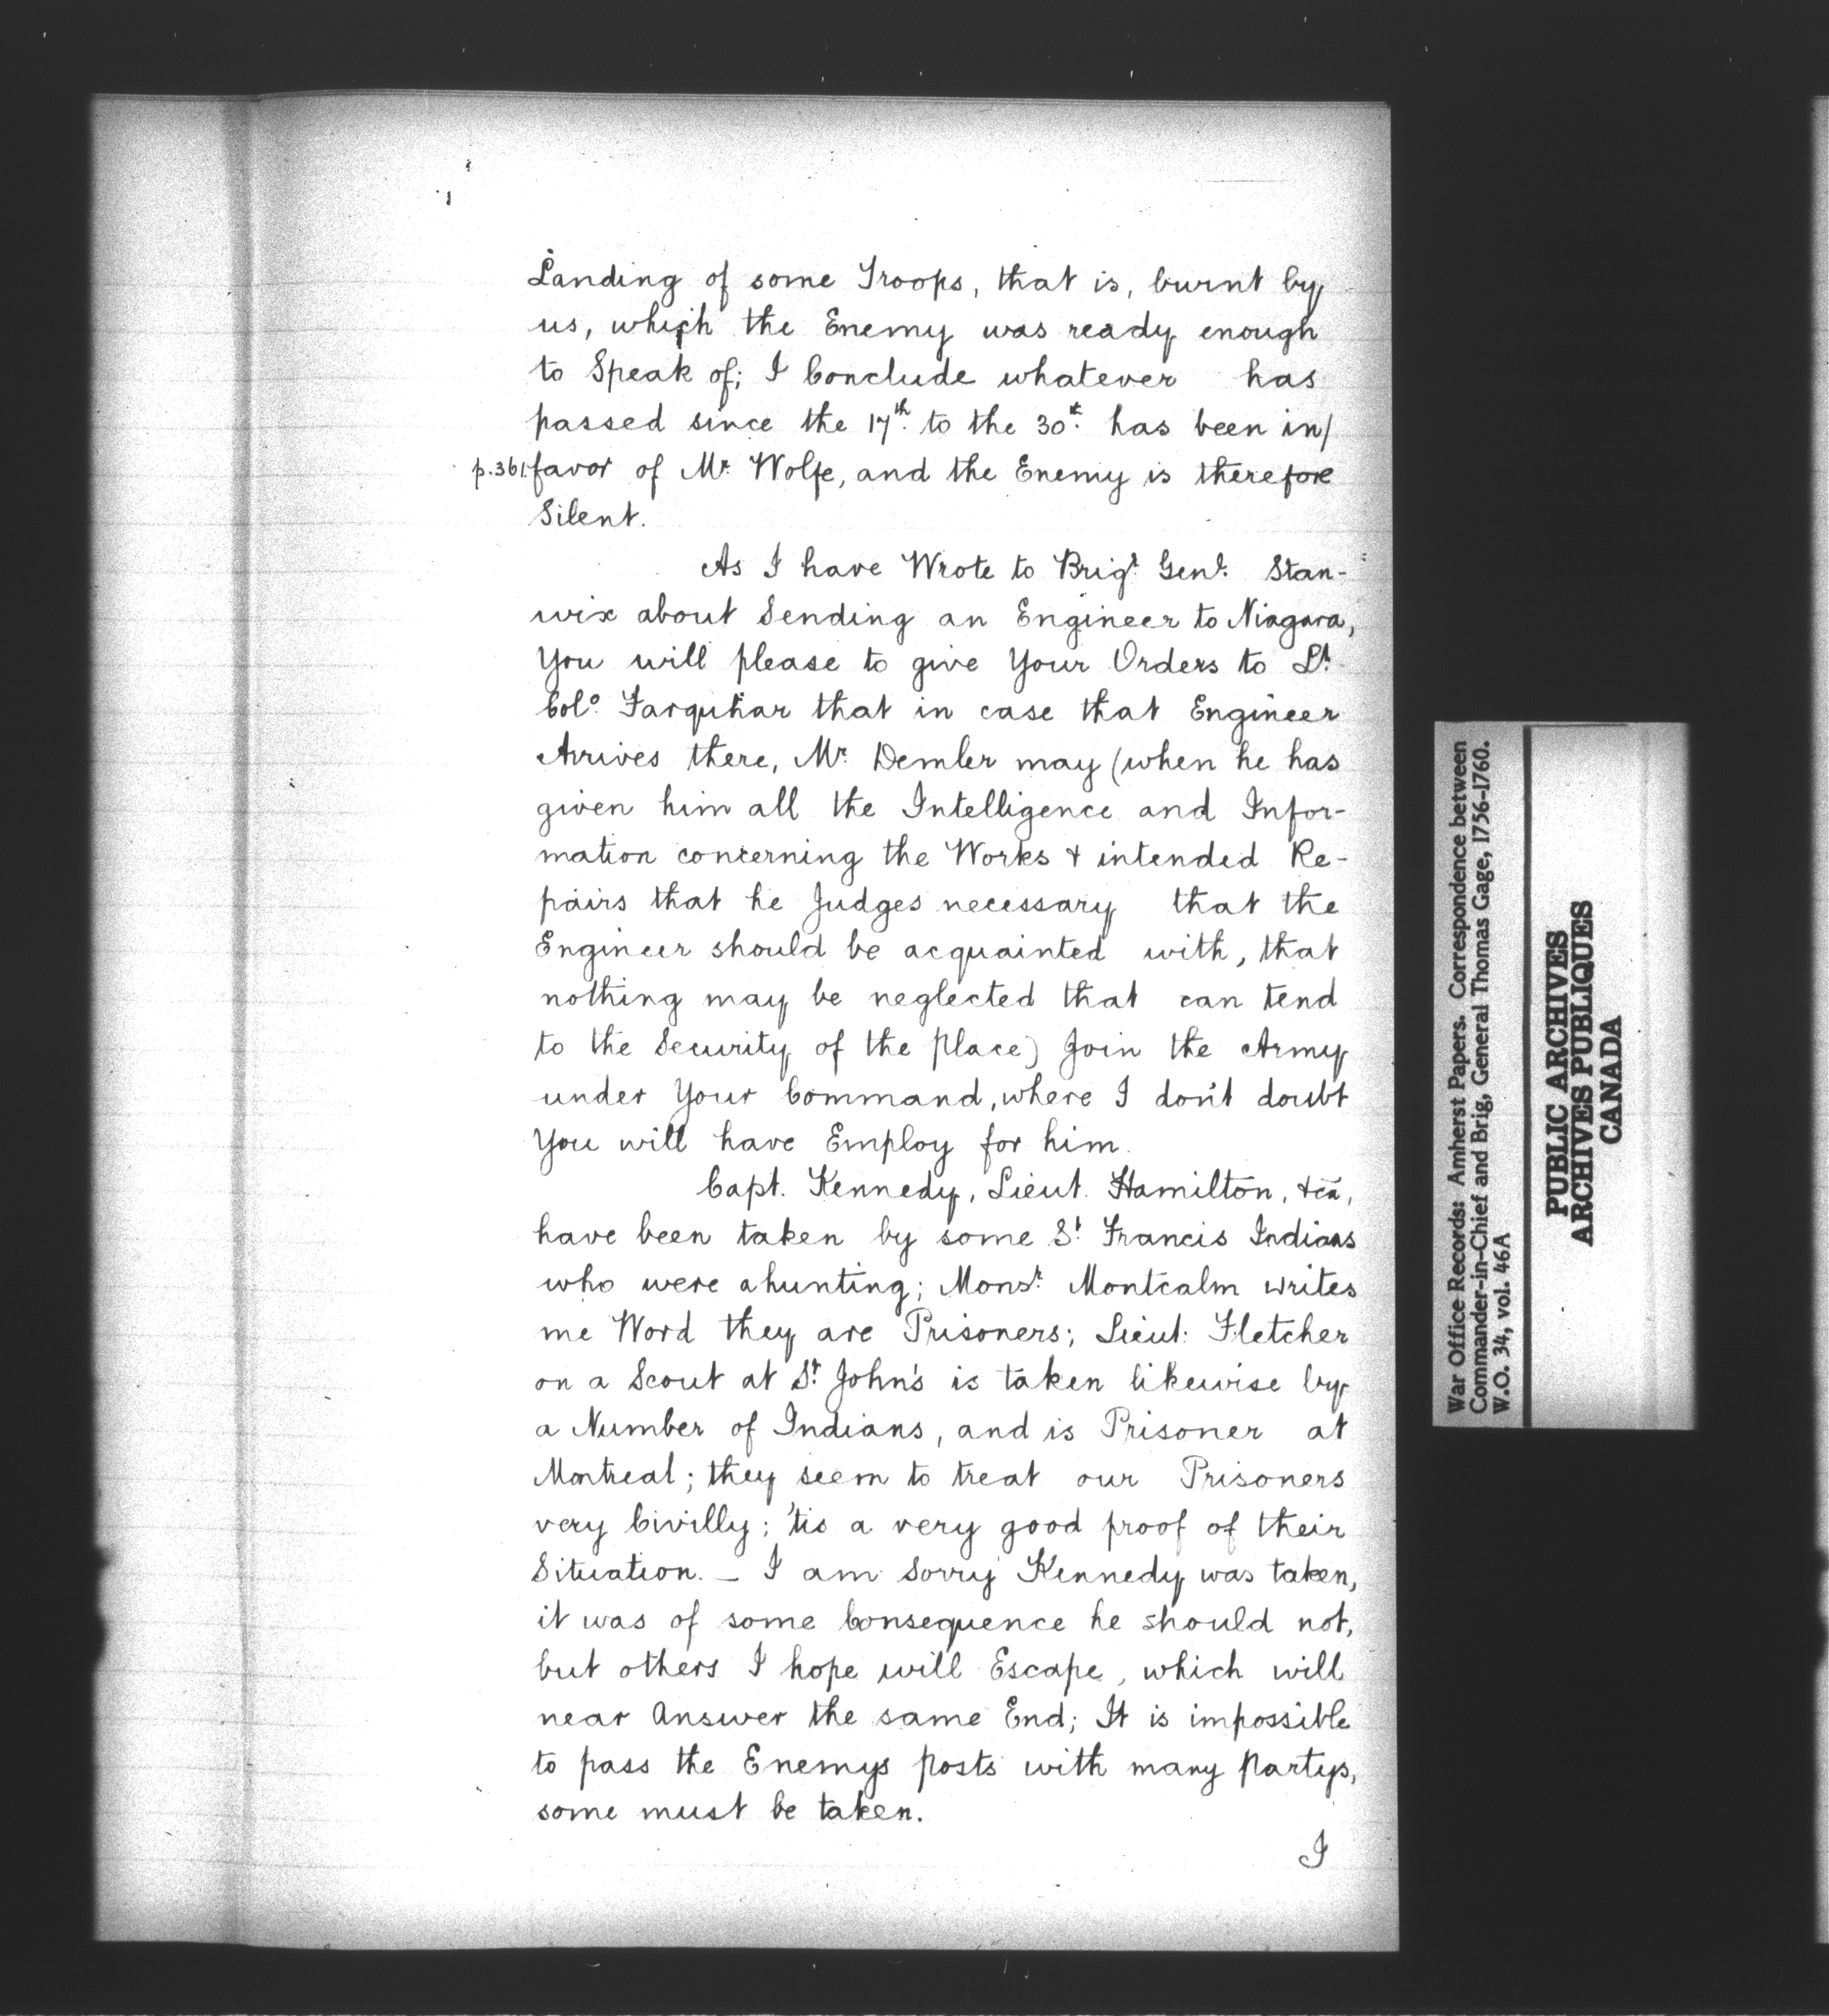 Landing of some Troops, that is, burnt by
us, which the Enemy was ready enough
to Speak of; I Conclude whatever has
passed since the 17th. to the 30th. has been in/
p.361. favor of Mr. Wolfe, and the Enemy is therefore
Silent.
As I have Wrote to Brigr. Genl. Stan-
wix about Sending an Engineer to Niagara,
You will please to give Your Orders to Lt.
Colo. Farquhar that in case that Engineer
Arrives there, Mr. Demler may (when he has
given him all the Intelligence and Infor-
mation concerning the Works & intended Re-
pairs that he Judges necessary that the
Engineer should be acquainted with, that
nothing may be neglected that can tend
to the Security of the place) Join the Army
under Your Command, where I don't doubt
You will have Employ for him.
Capt. Kennedy, Lieut. Hamilton, &ca,
have been taken by some St. Francis Indians
who were a hunting; Monsr. Montcalm writes
me Word they are Prisoners; Lieut: Fletcher
on a Scout at St. John's is taken likewise by
a Number of Indians, and is Prisoner at
Montreal; they seem to treat our Prisoners
very Civilly; 'tis a very good proof of their
Situation. _ I am Sorry Kennedy was taken,
it was of some Consequence he should not,
but others I hope will Escape, which will
near Answer the same End; It is impossible
to pass the Enemys posts with many Partys,
some must be taken.
I
War Office Records: Amherst Papers. Correspondence between
Commander-in-Chief and Brig, General Thomas Gage, 1756-1760.
W.O. 34, vol. 46A
PUBLIC ARCHIVES
ARCHIVES PUBLIQUES
CANADA